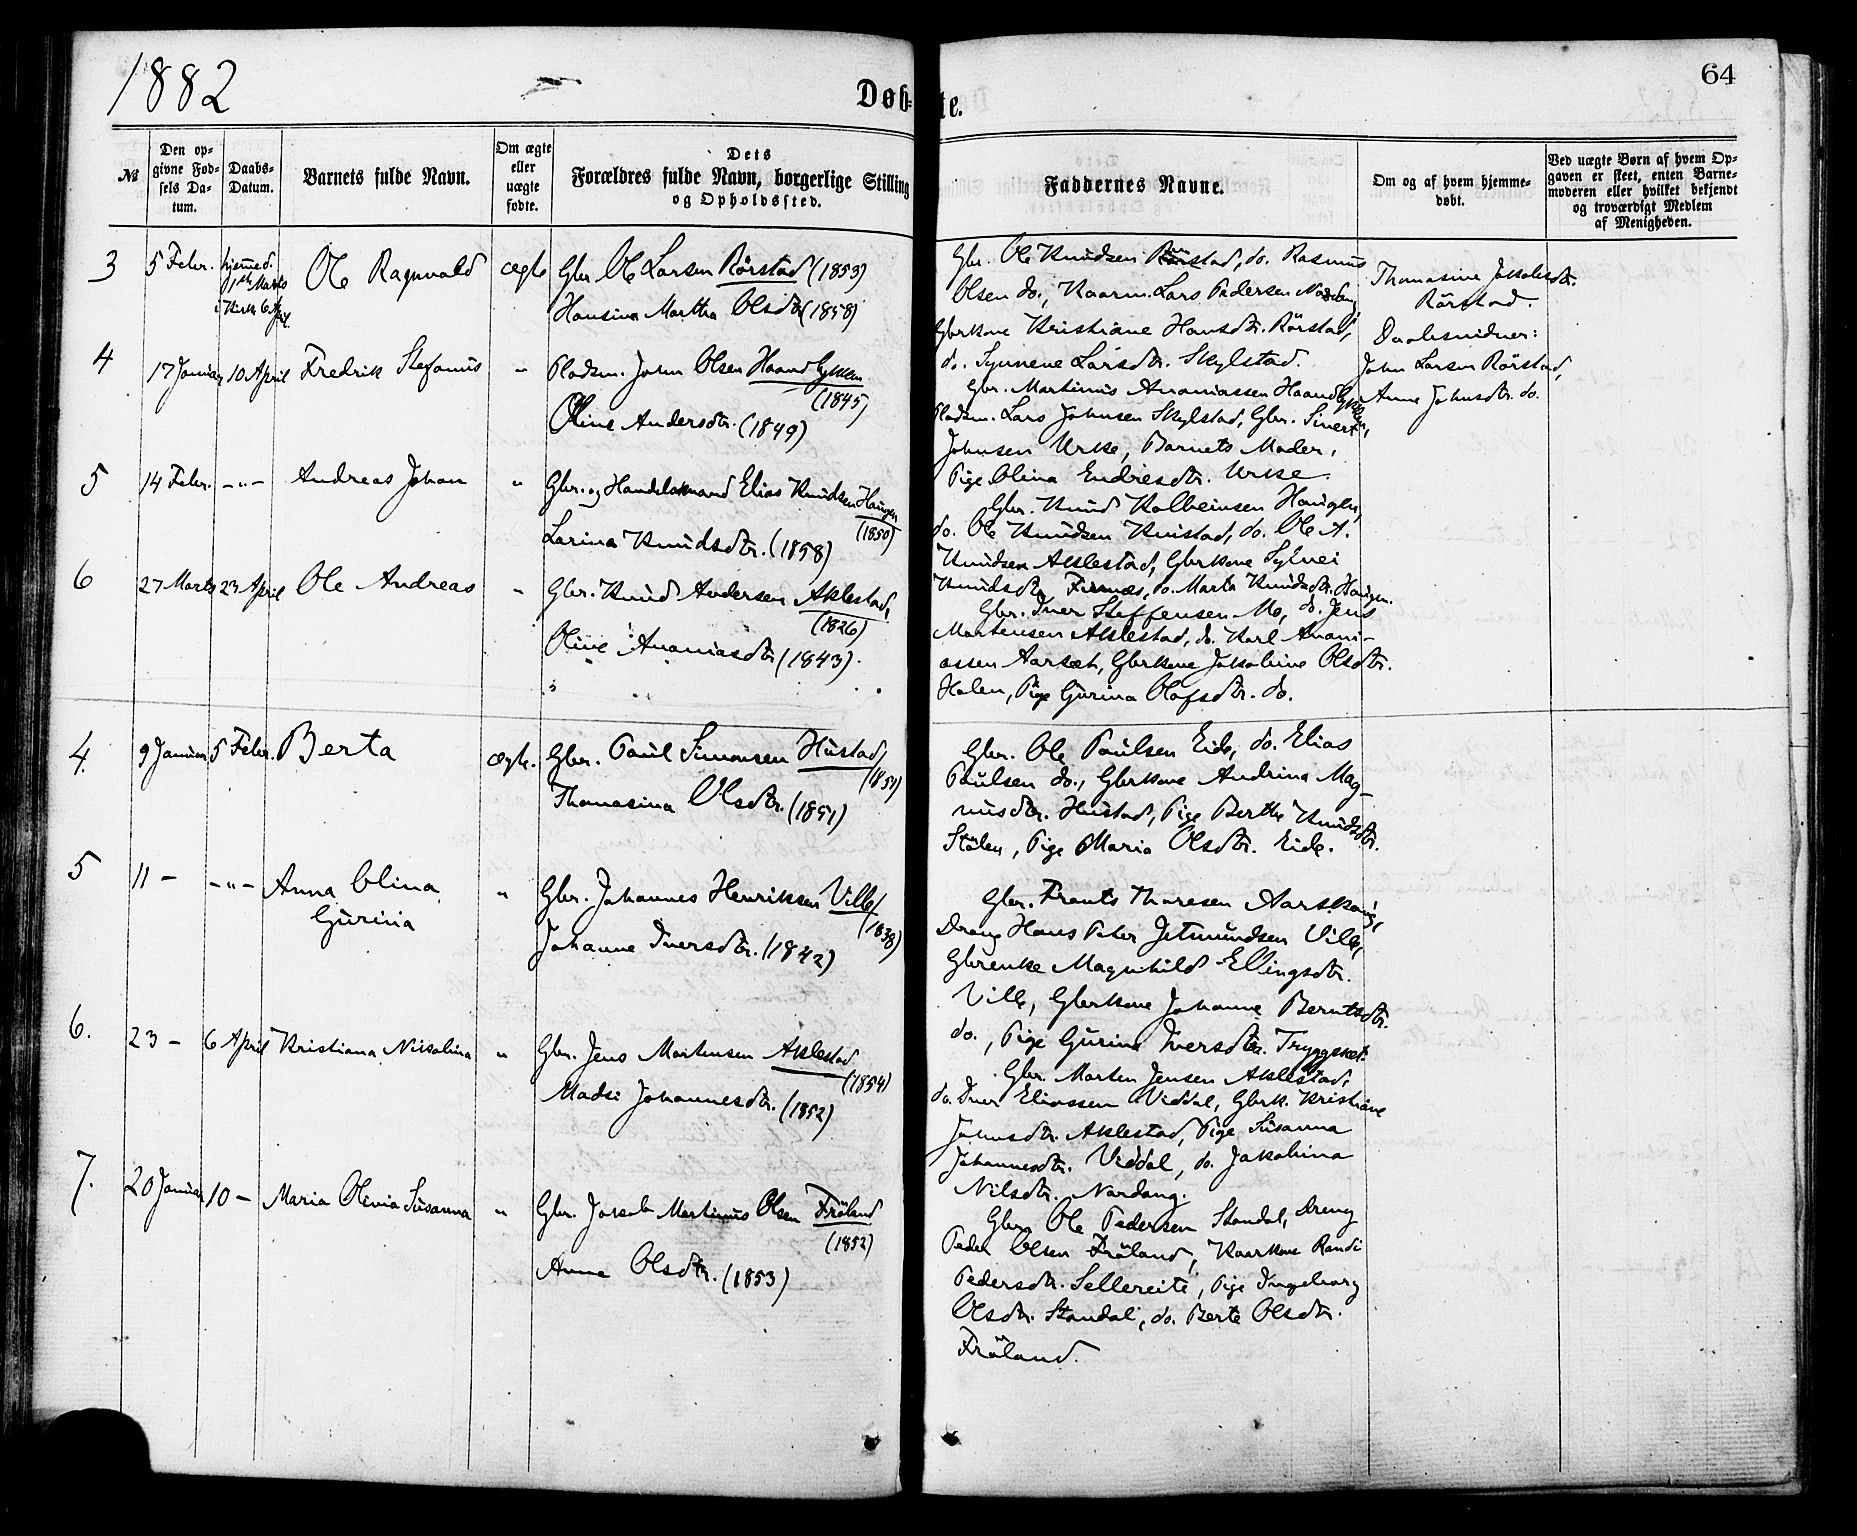 1882
Døb-
te.
64
№
Den op-
givne Fød-
sels Da-
tum.
Daabs-
Datum.
Barnets fulde Navn.
Om ægte
eller
uægte
fødte.
Dets
Forældres fulde Navn, borgerlige Stilling
og Opholdssted.
Faddernes Navne.
Om og af hvem hjemme-
døbt.
Ved uægte Børn af hvem Op-
gaven er skeet, enten Barne-
moderen eller hvilket bekjendt
og troværdigt Medlem
af Menigheden.
3
5 Febr.
hjemmed.
1ste Marts
i Kirk. 6 April
Ole Ragnvald
ægte
Gbr. Ole Larsen Rörstad (1853)
Hansina Martha Olsdtr (1858)
Gbr. Ole Knudsen Rörstad, do. Rasmus
Olsen do., Kaarm. Lars Pedersen Nordang,
Gbrkone Kristiane Hansdtr. Rörstad,
do. Synnene Larsdtr. Skylstad.
Thomasine Jakobsdtr.
Rörstad.
Daabsvidner:
John Larsen Rörstad,
Anne Johnsdtr. do.
4
17 Januar
10 April
Fredrik Stefanus
"
Pladsm. John Olsen Haandlykken
(1845)
Oline Andersdtr. (1849)
Gbr. Martinus Ananiassen Haandlykken,
Pladsm. Lars Johnsen Skylstad, Gbr. Sivert
Johnsen Urke, Barnets Moder,
Pige Olina Endresdtr. Urke.
5
14 Febr.
-"-
Andreas Johan
"
Gbr. og Handelsmand Elias Knudsen Haugen
(1850)
Larina Knudsdtr. (1858)
Gbr. Knud Kolbeinsen Haugen,
do. Ole Knudsen Kvistad, do. Ole A.
Knudsen Aklestad, Gbrkone Sylvei
Knudsdtr Finnes, do. Marta Knudsdtr. Haugen.
6
27 Marts
23 April
Ole Andreas
"
Gbr. Knud Andersen Aklestad,
(1826)
Olive Ananiasdtr (1843).
Gbr. Iver Steffensen Mo, do. Jens
Martensen Aklestad, do. Karl Anani-
assen Aarset, Gbrkone Jakobine Olsdtr.
Holen, Pige Gurina Olafsdtr. do.
4.
9 Januar
5 Febr.
Berta
ægte.
Gbr. Paul Simonsen Hustad
Thomasina Olsdtr. (1851)
Gbr. Ole Paulsen Eide, do. Elias
Paulsen do., Gbrkone Andrina Mag-
nusdtr. Hustad, Pige Berthe Knudsdtr.
Stölen, Pige Maria Olsdtr. Eide.
5
11 -
-"-
Anna Olina
Gurina
"
Gbr. Johannes Henriksen Ville
(1838)
Johanne Iversdtr. (1842)
Gbr. Frants Thoresen Aarskoug,
Dreng Hans Peter Jetmundsen Ville,
Gbrenke Magnhild Ellingsdtr.
Ville, Gbrkone Johanne Berntsdtr.
do., Pige Gurine Iversdtr. Tryggestad.
6.
23 -
6 April
Kristiana Nikolina
"
Gbr. Jens Martensen Aklestad
(1854)
Madsi Johannesdtr. (1852)
Gbr. Morten Jensen Aklestad,
do. Iver Eliassen Viddal, Gbrk. Kristiane
Johnsdtr. Aklestad, Pige Susanna
Johannesdtr. Viddal, do. Jakobina
Nilsdtr. Nordang.
7.
20 Januar
10 -
Maria Olivia Susanna
"
Gbr. Jakob Martinus Olsen Fröland
(1852)
Anne Olsdtr. (1853)
Gbr. Ole Pedersen Standal, Dreng
Peder Olsen Fröland, Kaarkone Randi
Pedersdtr. Sellereite, Pige Ingeborg
Olsdtr. Standal, do. Berte Olsdtr.
Fröland.